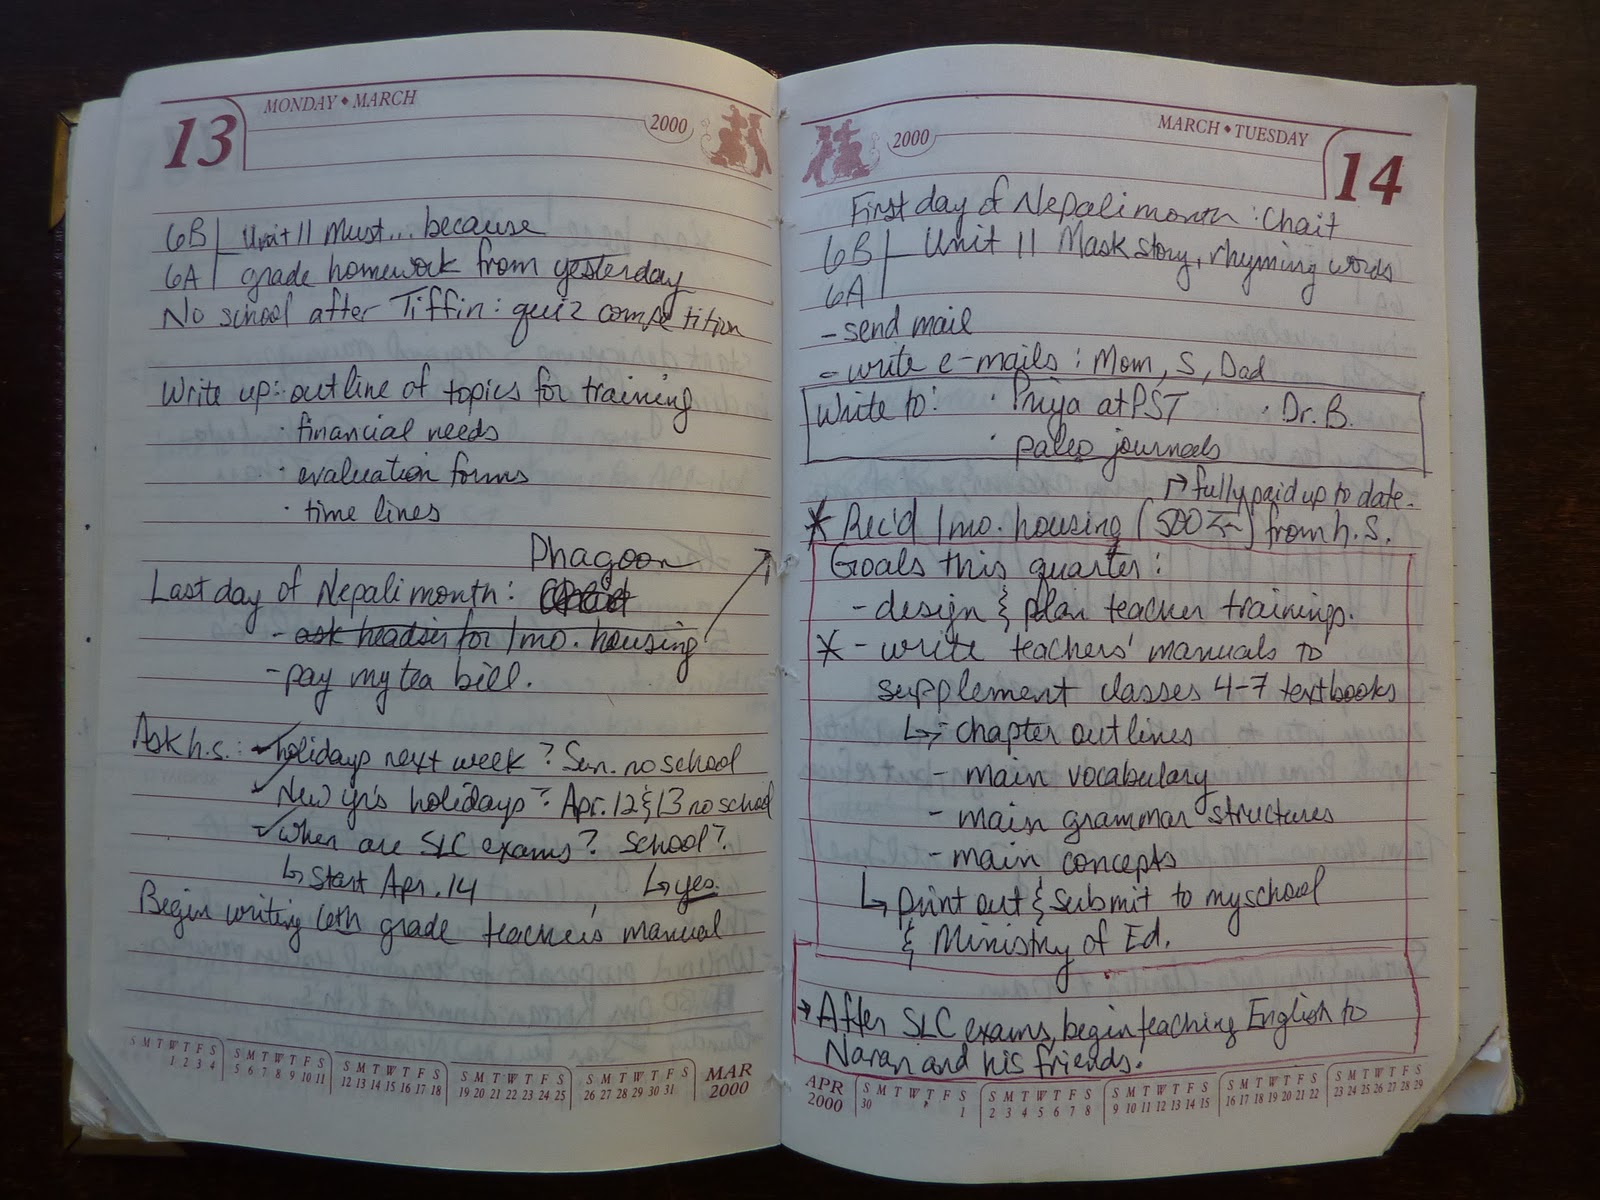 13
MONDAY ♦ MARCH
2000
6B Unit 11 Must... because
6A grade homework from yesterday
No school after Tiffin: quiz competition
Write up: outline of topics for training
· financial needs
· evaluation forms
· time lines
Phagoon
Last day of Nepali month:
- ask headsir for 1 mo. housing
- pay my tea bill.
Ask h.s.: ✓ holidays next week? Sun. no school
✓ New yr's holidays? Apr. 12 & 13 no school
✓ When are SLC exams? School?
↳ start Apr. 14 ↳ yes.
Begin writing 6th grade teacher's manual
S M T W T F S S M T W T F S S M T W T F S S M T W T F S S M T W T F S
1 2 3 4 5 6 7 8 9 10 11 12 13 14 15 16 17 18 19 20 21 22 23 24 25 26 27 28 29 30 31
MAR
2000
2000
MARCH ♦ TUESDAY
14
First day of Nepali month: Chait
6B Unit 11 Mask story, rhyming words
6A
- send mail
- write e-mails: Mom, S, Dad
Write to: · Priya at PST · Dr. B.
· paleo journals
↱ fully paid up to date.
* Rec'd 1 mo. housing (500) from h.S.
Goals this quarter:
- design & plan teacher trainings.
* - write teachers' manuals to
supplement classes 4-7 textbooks
↳ - chapter outlines
- main vocabulary
- main grammar structures
- main concepts
↳ print out & submit to my school
& Ministry of Ed.
→ After SLC exams, begin teaching English to
Naran and his friends!
APR
2000
S M T W T F S S M T W T F S S M T W T F S S M T W T F S S M T W T F S
30 1 2 3 4 5 6 7 8 9 10 11 12 13 14 15 16 17 18 19 20 21 22 23 24 25 26 27 28 29